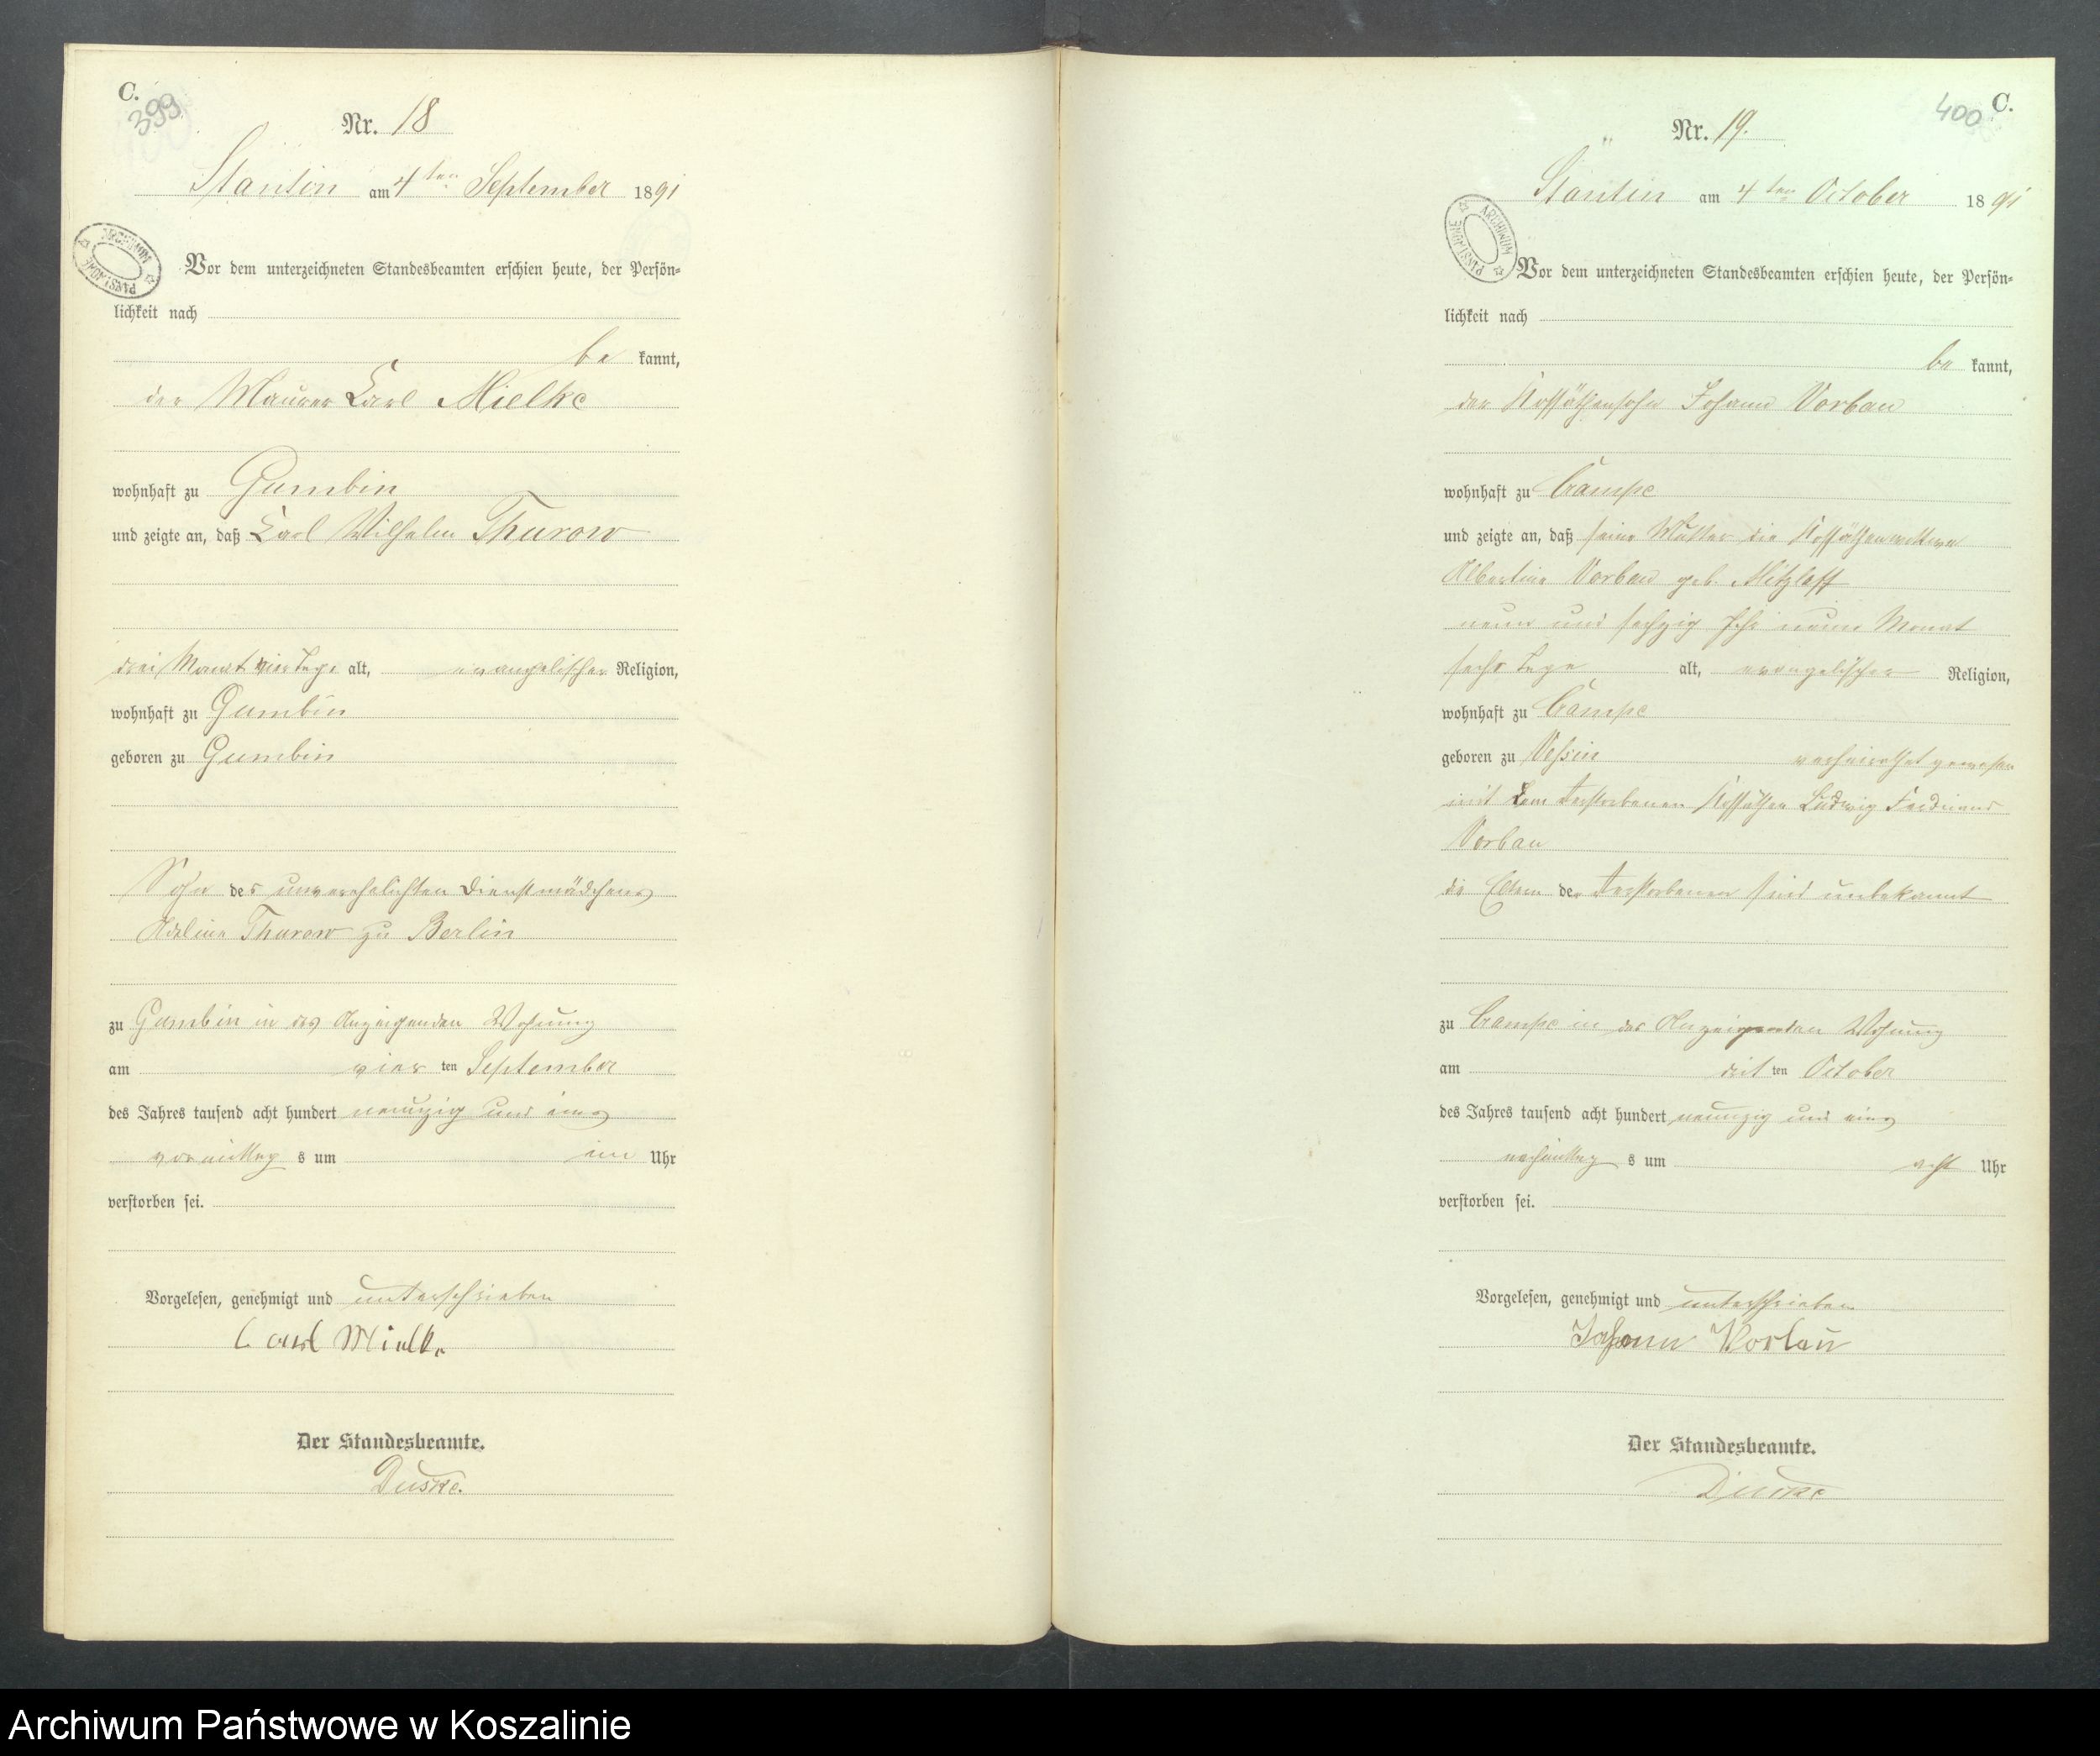 C.
399
Nr. 18
Stantin am 4ten September 1891
ARCHIWUM PAŃSTWOWE
Vor dem unterzeichneten Standesbeamten erschien heute, der Persön-
lichkeit nach
be kannt,
der Maurer Carl Mielke
wohnhaft zu Gumbin
und zeigte an, daß Carl Wilhelm Thurow
drei Monat vier Tage alt, evangelischer Religion,
wohnhaft zu Gumbin
geboren zu Gumbin
Sohn des unverehelichten Dienstmädchens
Adeline Thurow zu Berlin
zu Gumbin in des Anzeigenden Wohnung
am vier ten September
des Jahres tausend acht hundert neunzig und eins
vormittag s um Uhr
verstorben sei.
Vorgelesen, genehmigt und unterschrieben
Carl Mielke
Der Standesbeamte.
Duske.
400
C.
Nr. 19.
Stantin am 4ten October 1891
ARCHIWUM PAŃSTWOWE
Vor dem unterzeichneten Standesbeamten erschien heute, der Persön-
lichkeit nach
be kannt,
der Kossäthensohn Johann Vorbau
wohnhaft zu Crampe
und zeigte an, daß seine Mutter die Kossäthenwittwe
Albertine Vorbau geb. Mitzlaff
neun und sechzig Jahr neun Monat
sechs Tage alt, evangelischer Religion,
wohnhaft zu Crampe
geboren zu Vessin verheirathet gewesen
mit dem verstorbenen Kossäthen Ludwig Ferdinand
Vorbau
die Eltern der Verstorbenen sind unbekannt
zu Crampe in des Anzeigenden Wohnung
am drit ten October
des Jahres tausend acht hundert neunzig und eins
nachmittag s um acht Uhr
verstorben sei.
Vorgelesen, genehmigt und unterschrieben
Johann Vorbau
Der Standesbeamte.
Duske
Archiwum Państwowe w Koszalinie